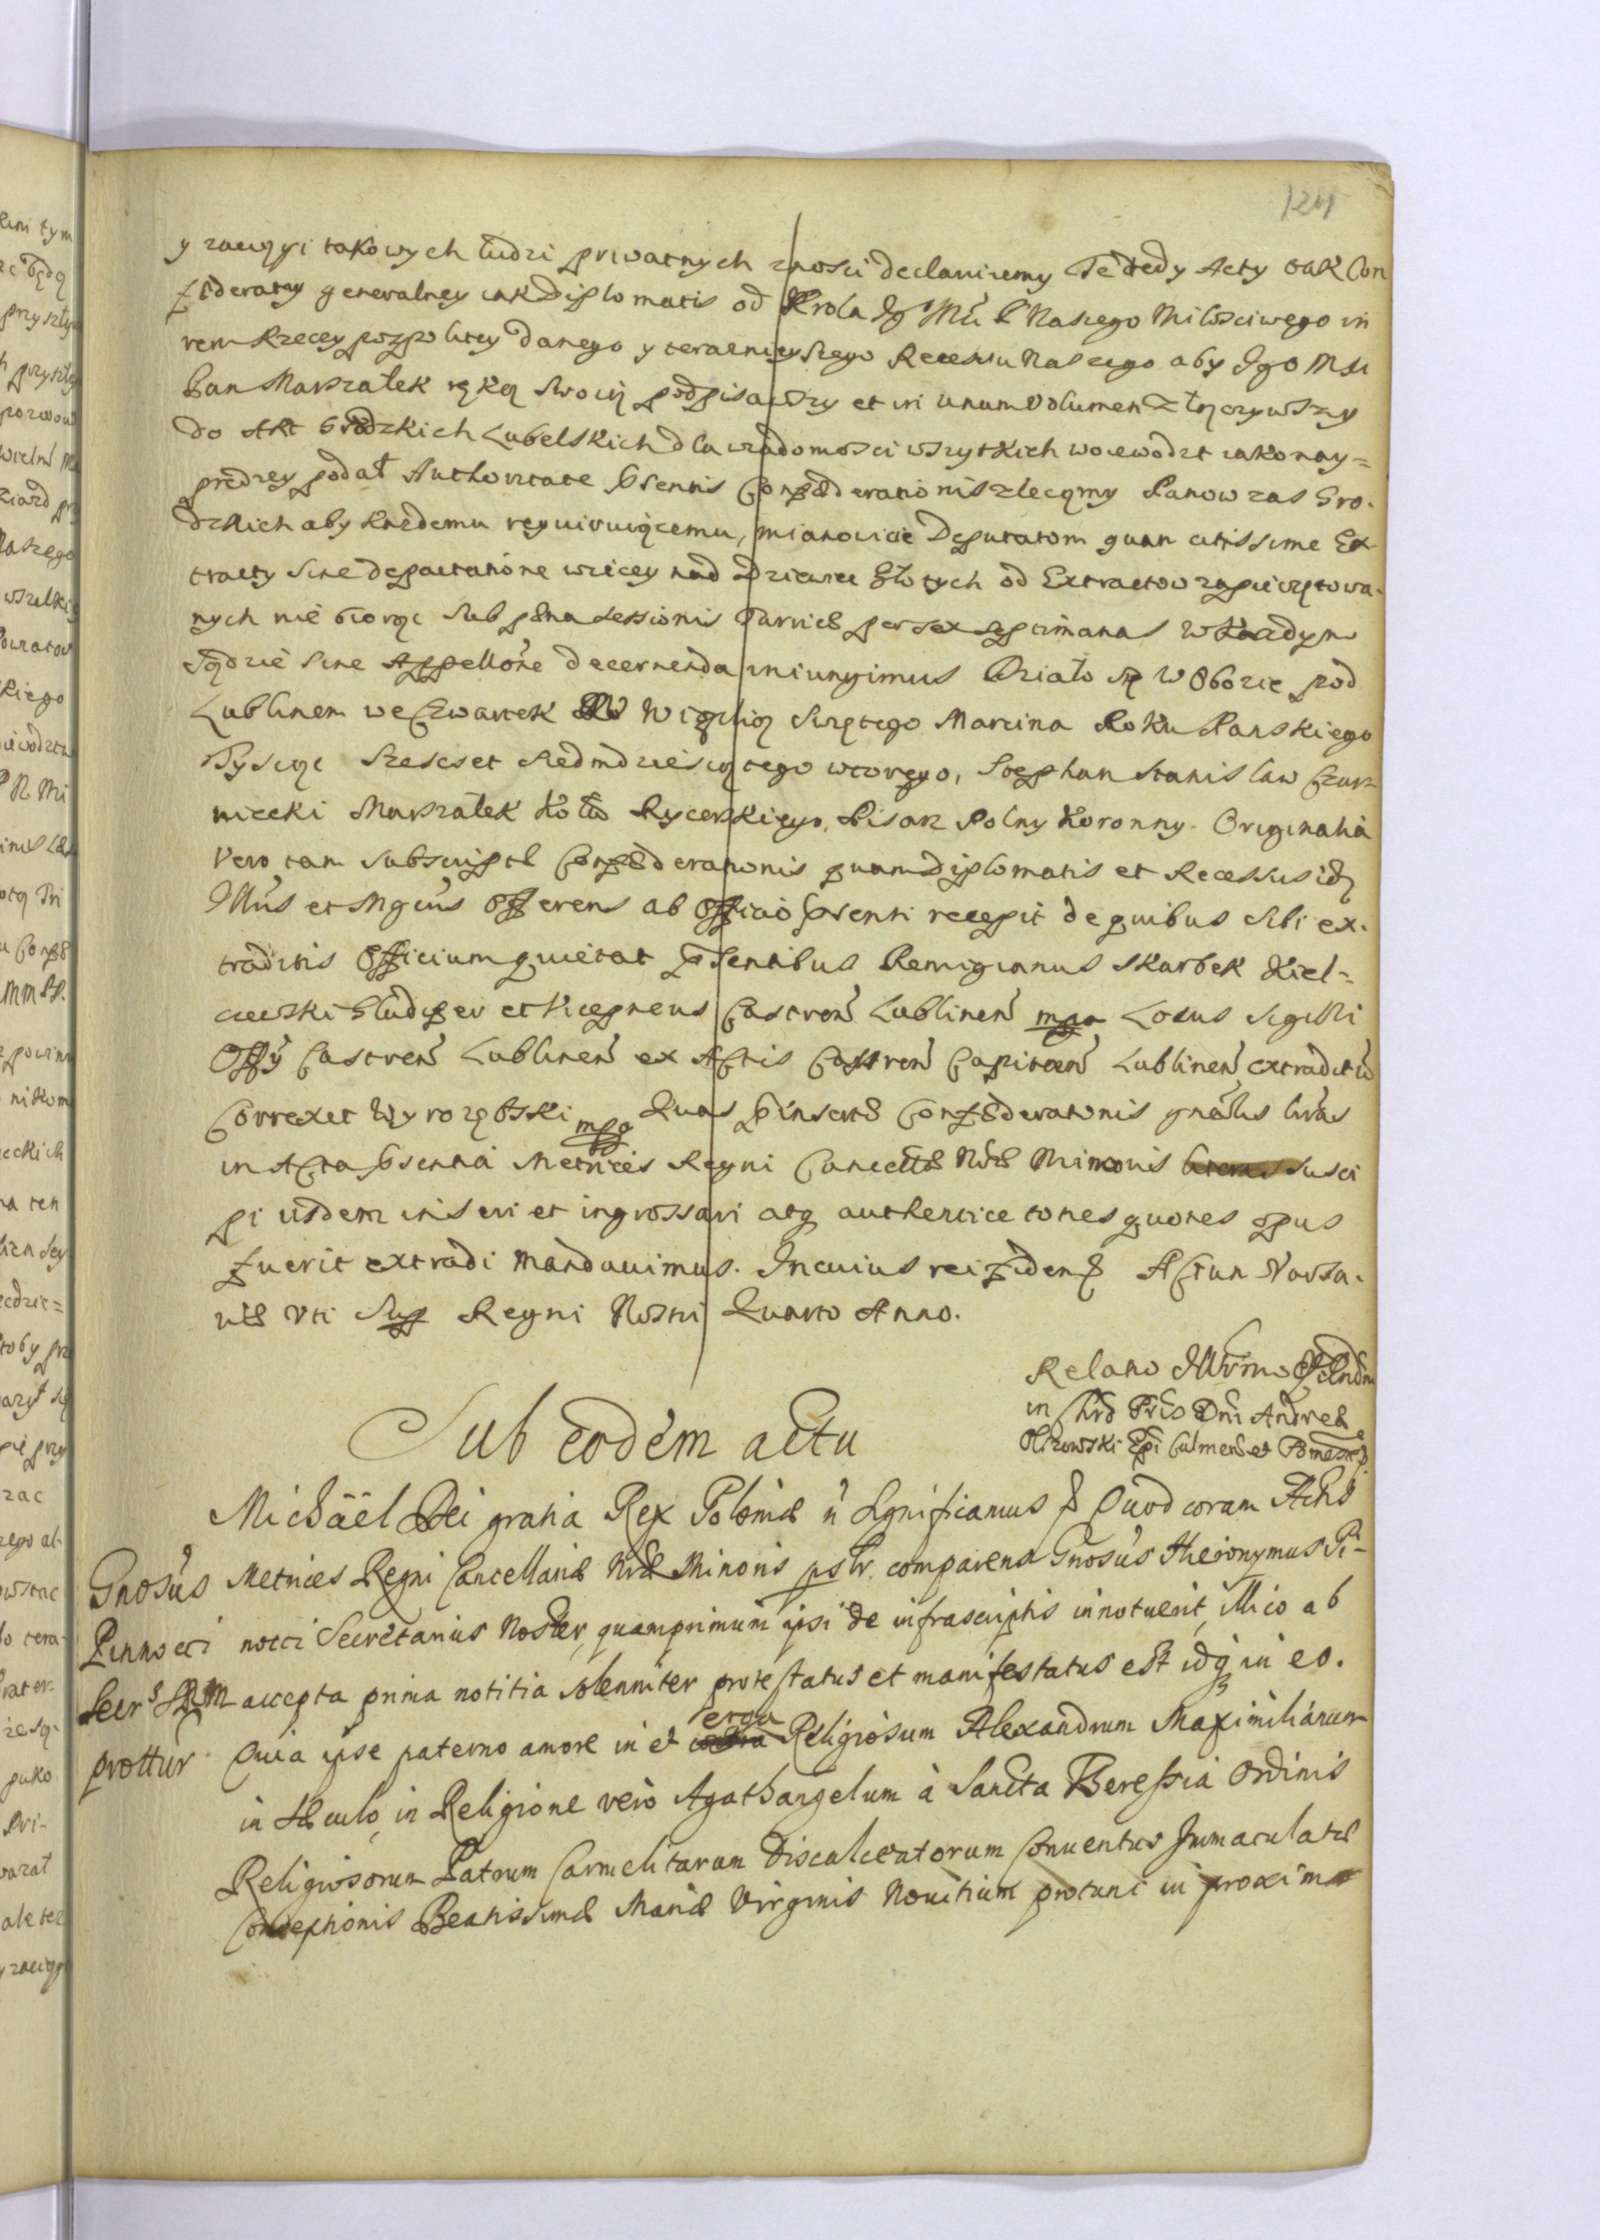 124
y zaciągi takowych ludzi privatnych znosić declaruiemy Te tedy Acty tak Con
fæderatiey generalney iak Diplomatis od Krola Jg Mći P Naszego Miłosciwego in
rem Rzeczypospolitey danego y teraznieyszego Recessu Naszego aby Jgo Msc
Pan Marszałek ręką swoią podpisawszy et in unum Volumen złączywszy
do Akt Grodzkich Lubelskich dla wiadomosci wszytkich woiewodzt iako nay=
prędzey podał Authoritate Pṡentis Confæderationis zlecamy Panow zas Gro-
dzkich aby kazdemu requiruiącemu, mianowicie Deputatom quam citissime Ex-
tracty sine depactatione wiecey nad dziewiec złotych od Extractow zapieczętowa-
nych nie biorąc sub pæna sessionis Turris per sex septimanas w kazdym
Sądzie sine Appellone decernenda iniungimus Działo się w Obozie pod
Lublinem we Czwartek w Wigilią Swiętego Marcina Roku Panskiego
Tysiąc Szescset Siedmdziesiątego wtorego, Stephan Stanisław Czar-
niecki Marszałek Koła Rycerskiego, Pisarz Polny Koronny. Originalia
Vero tam subscriptæ Confæderationis quam Diplomatis et Recessus idq
Illus et Mgcus Offerens ab Officio Pṡenti recepit de quibus sibi ex-
traditis Officium quietat Pṡentibus Remigianus Skarbek Kiel-
czewski Gladifer et Vicegrens Castren Lublinen mpa Locus Sigilli
Offy Castren Lublinen ex Actis Castren Capitan Lublinen extraditu
Correxit Wyrozębski mpa Quas Pinsertæ Confæderationis gnalis lras
in Acta Pṡentia Metrices Regni Cancellæ Nræ Minoris susci
pi iisdem inseri et ingrossari atq authentice toties quoties opus
fuerit extradi mandavimus. In cuius rei fidem Actum Varsa-
viæ Vti Sup Regni Nostri Quarto Anno.
Relatio Illrmi et Rndm
in Chro Pris Dni Andreæ
Olszowski Epi Culmen et Pomesa
Sub eodem actu
Michaël Dei gratia Rex Poloniæ Significamus Quod coram Actis
Gnosus Metrices Regni Cancellariæ Nræ Minoris pslr. comparens Gnosus Hieronymus Pi-
Pinnocci nocci Secretarius Noster, quamprimum ipsi de infrascriptis innotuerit, illico ab
Secrs SRM accepta prima notitia solenniter protestatus et manifestatus est idq in eo.
prottur Quia ipse paterno amore in et erga Religiosum Alexandrum Maximilianum
in sæculo, in Religione vero Agathangelum à Sancta Theressia Ordinis
Religiosorum Patrum Carmelitarum Discalceatorum Conventus Immaculatæ
Conceptionis Beatissimæ Mariæ Virginis Novitium protunc in proximo